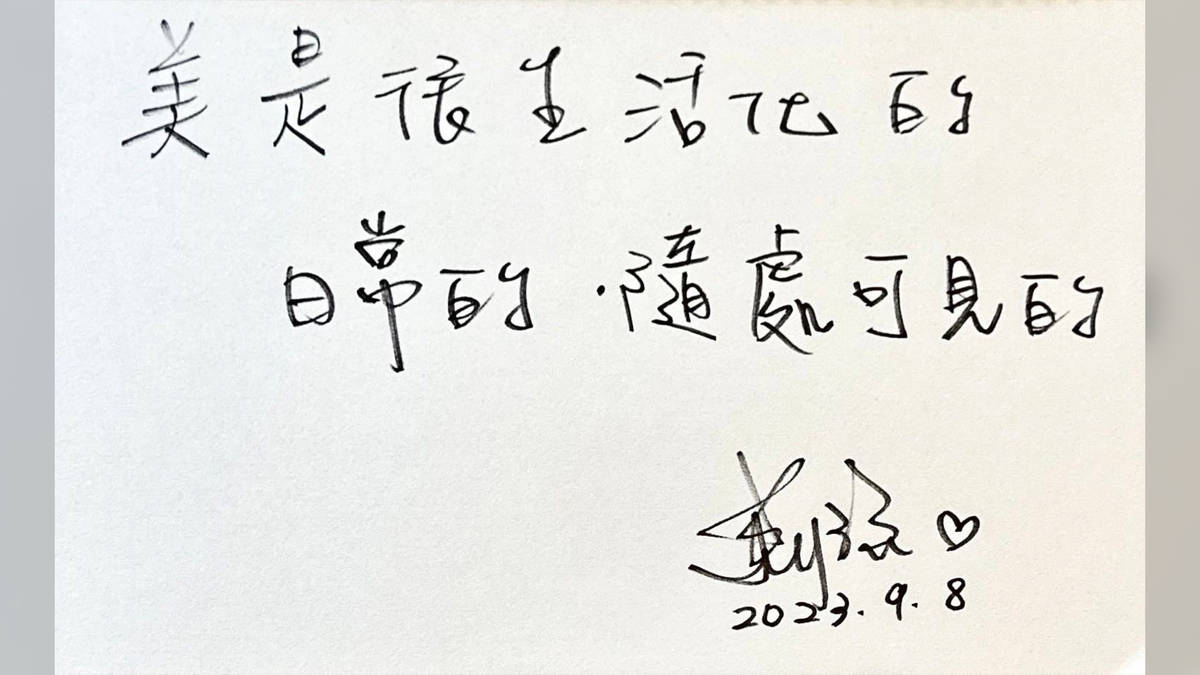 美是很生活化的
日常的·隨處可見的
2023.9.8